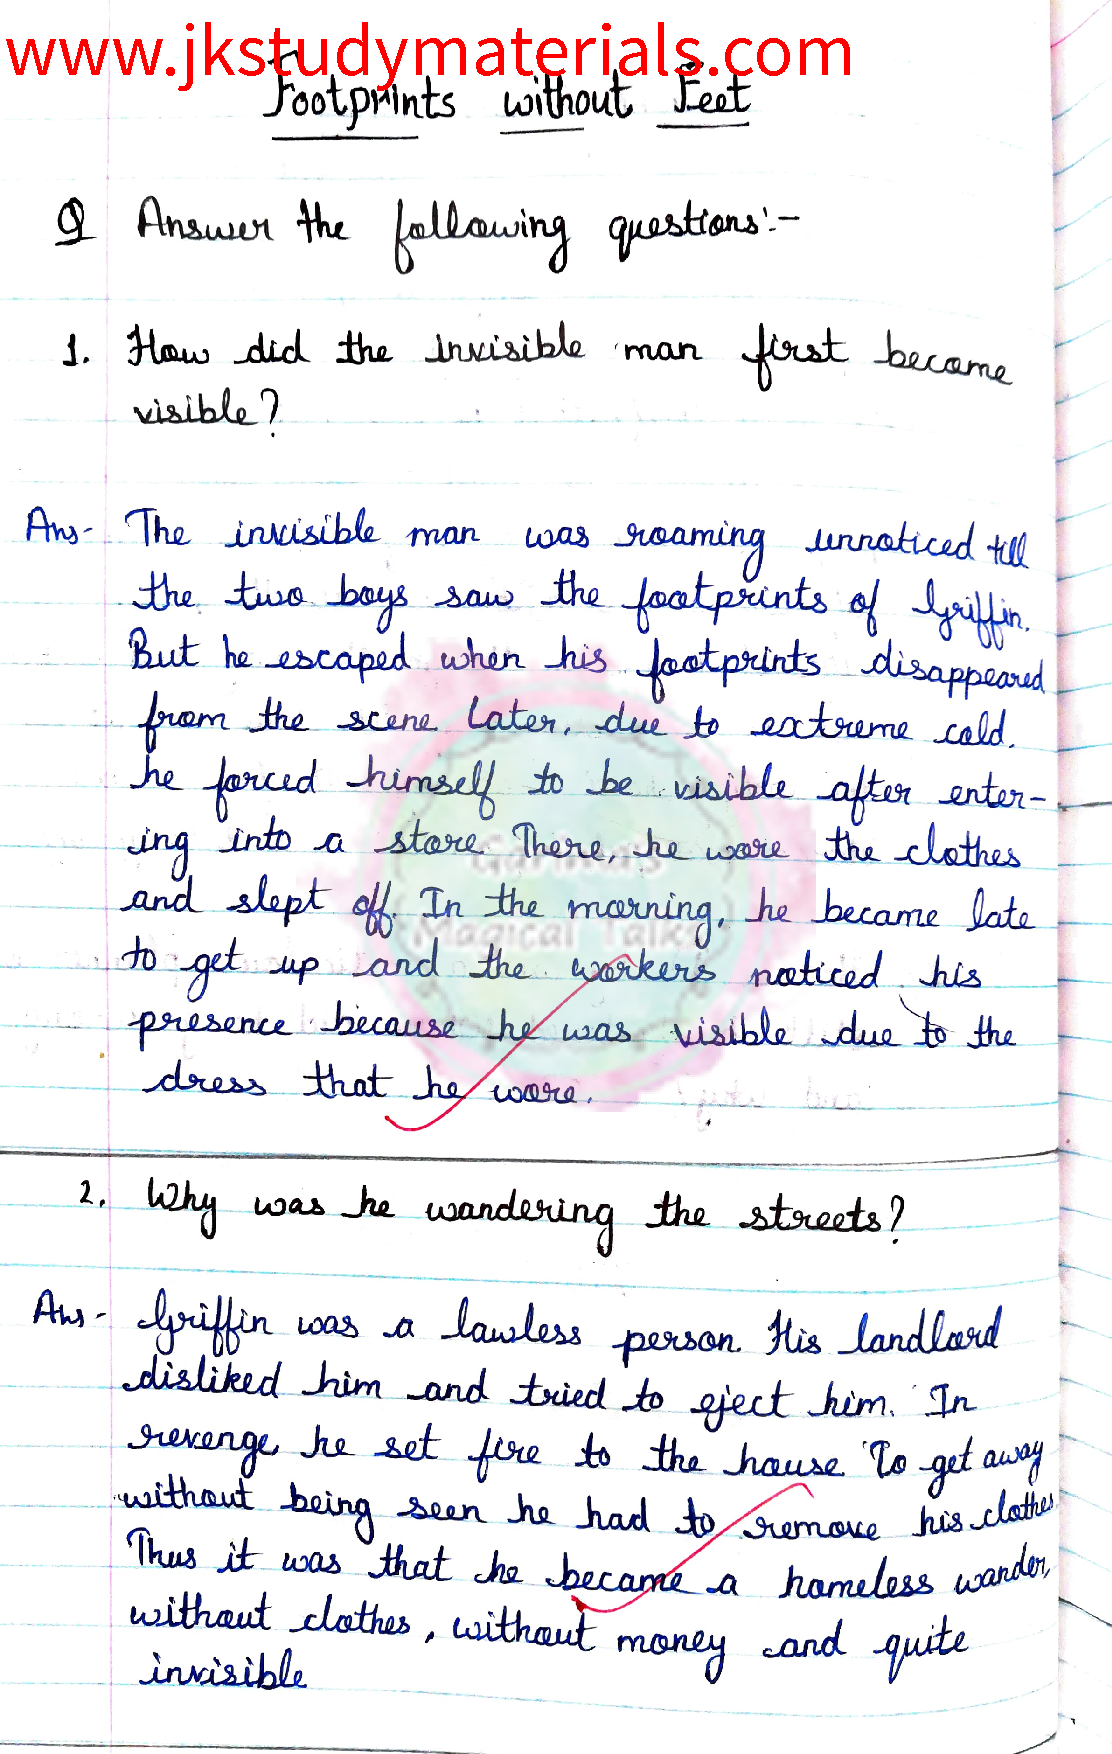 www.jkstudymaterials.com
Footprints without Feet
Q Answer the following questions:-
1. How did the invisible man first become
visible?
Ans- The invisible man was roaming unnoticed till
the two boys saw the footprints of Griffin.
But he escaped when his footprints disappeared
from the scene. Later, due to extreme cold.
he forced himself to be visible after enter-
ing into a store. There, he wore the clothes
and slept off. In the morning, he became late
Magical Talks
to get up and the workers noticed his
presence because he was visible due to the
dress that he wore.
2. Why was he wandering the streets?
Ans- Griffin was a lawless person. His landlord
disliked him and tried to eject him. In
revenge he set fire to the house. To get away
without being seen he had to remove his clothes
Thus it was that he became a homeless wander,
without clothes, without money and quite
invisible